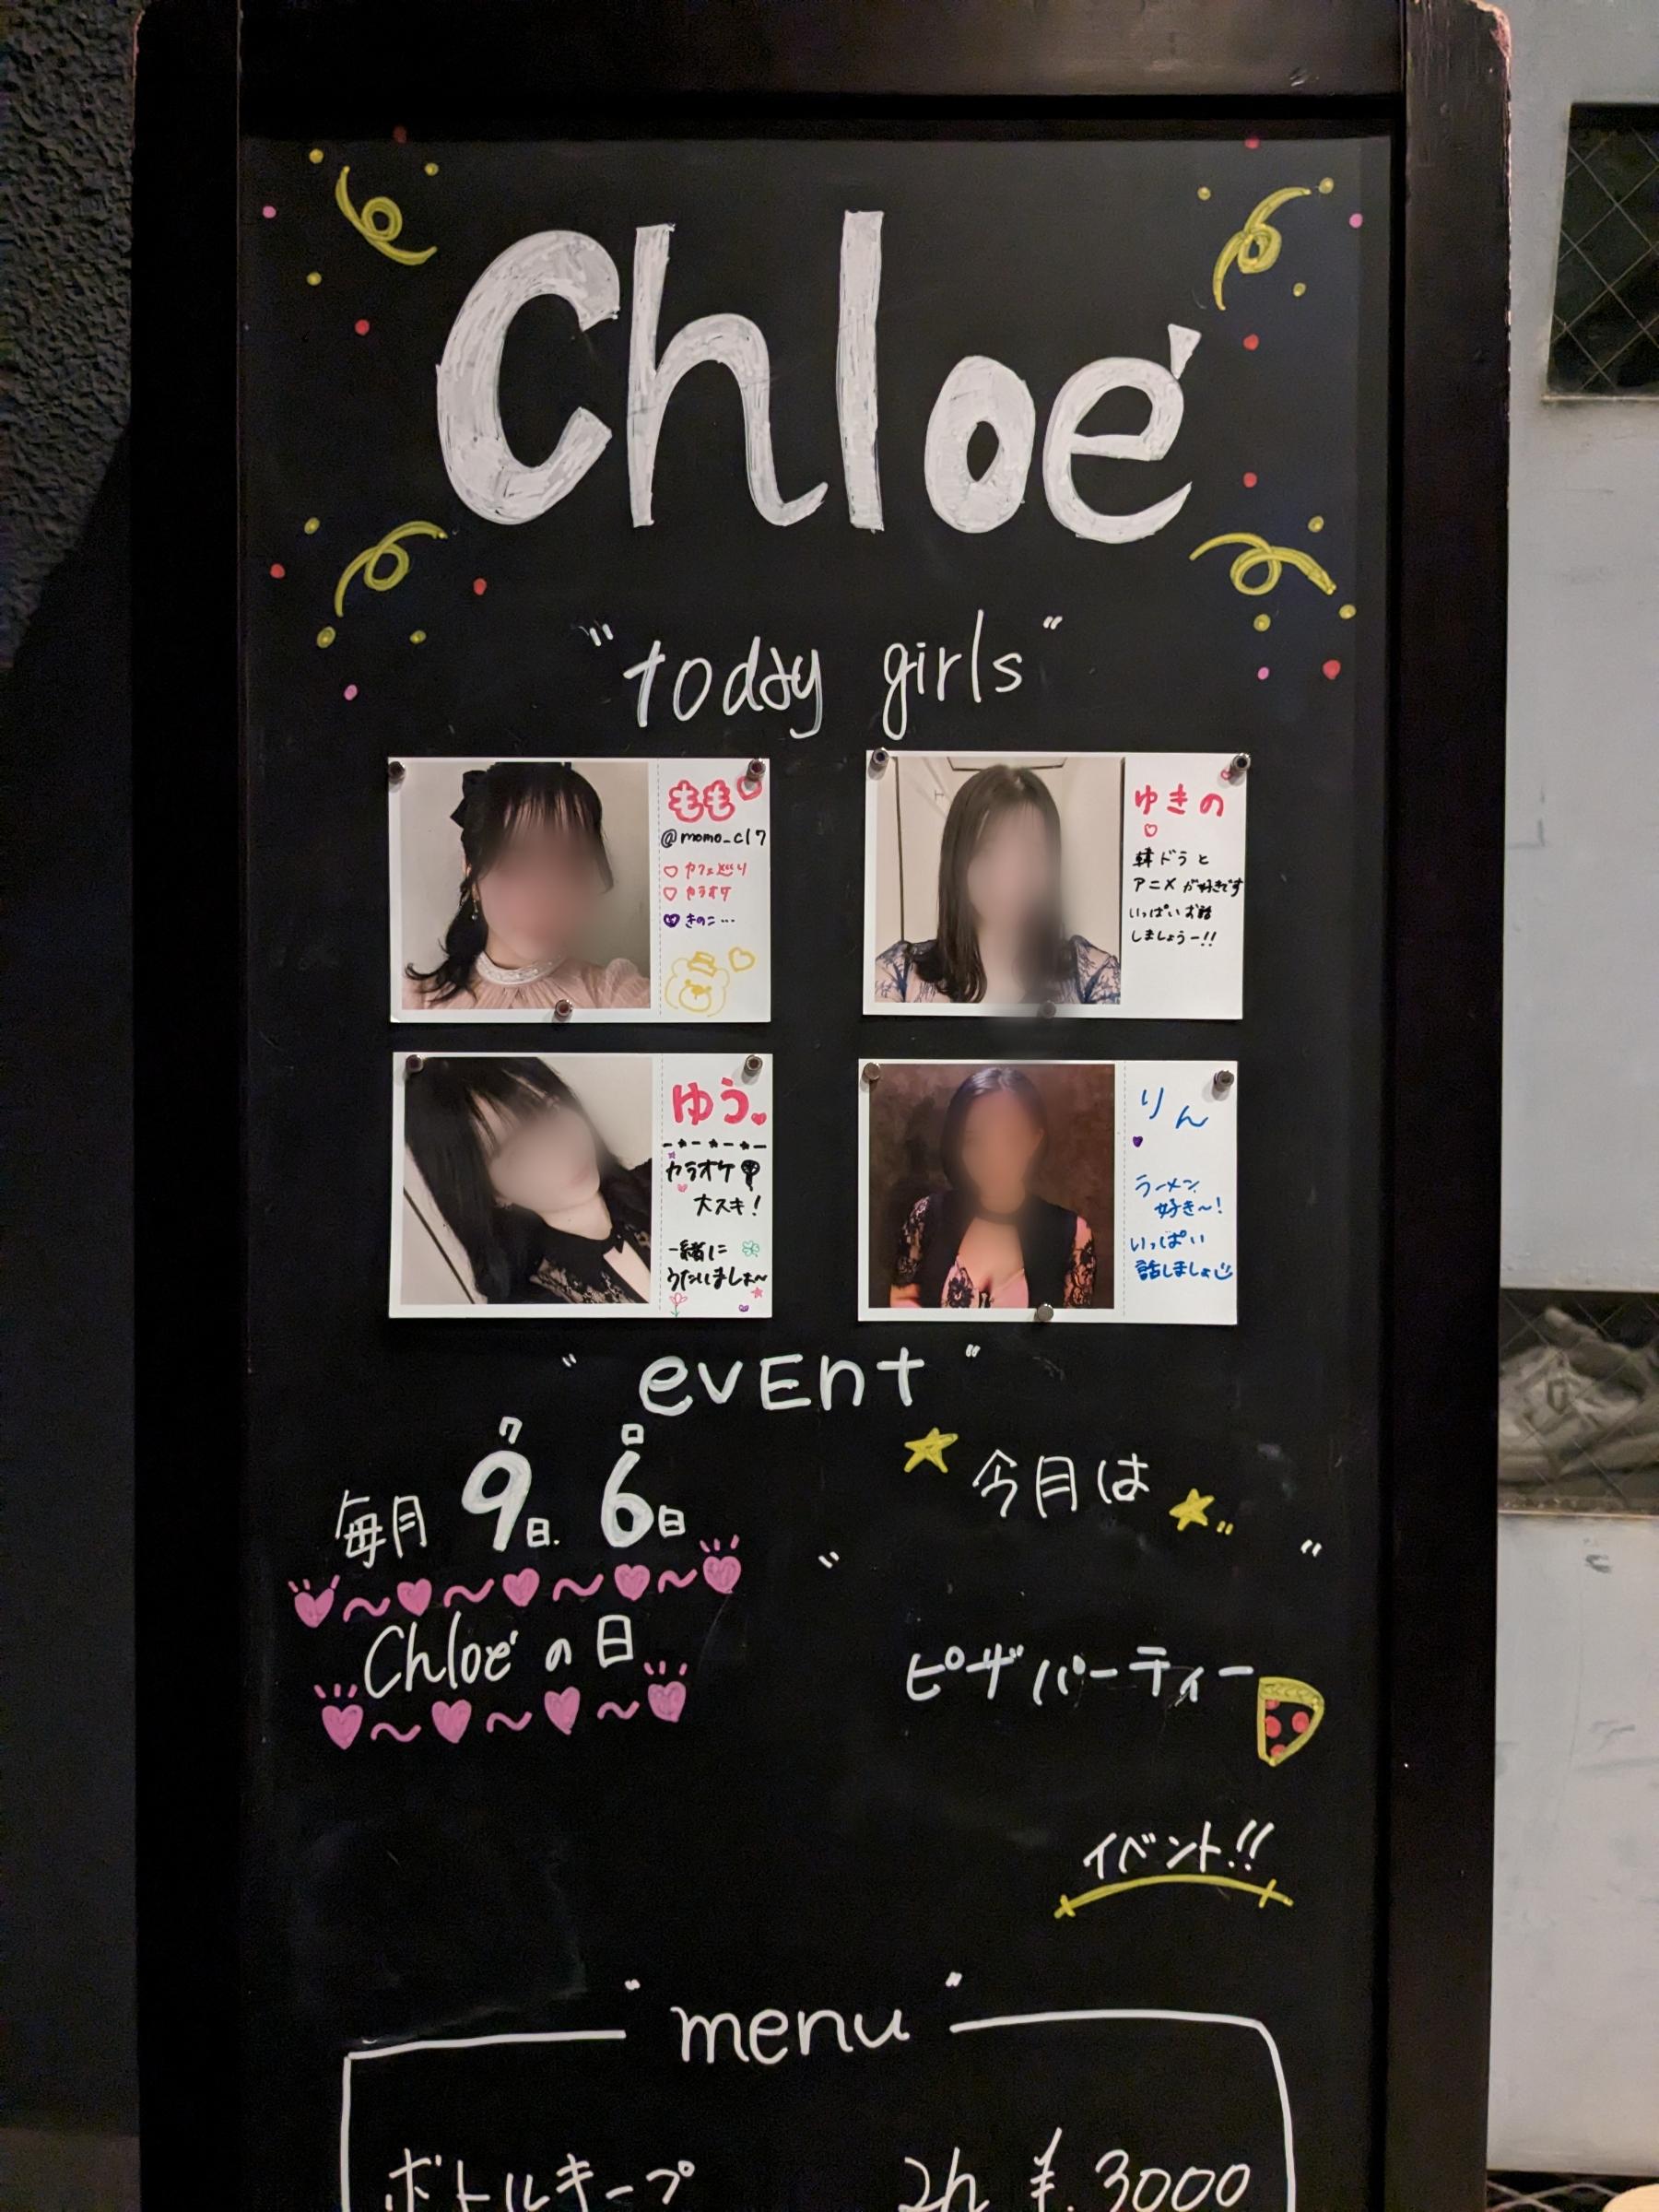 Chloé
"today girls"
もも
@momo_c17
カフェ巡り
カラオケ
きのこ…
ゆきの
韓ドラと
アニメが好きです
いっぱいお話
しましょうー!!
ゆう
カラオケ
大スキ!
一緒に
うたいましょ〜
りん
ラーメン
好き〜!
いっぱい
話しましょ
"event"
ク ロ
毎月 9日. 6日
Chloéの日
今月は
" "
ピザパーティー
イベント!!
"menu"
ボトルキープ 2h ¥.3000